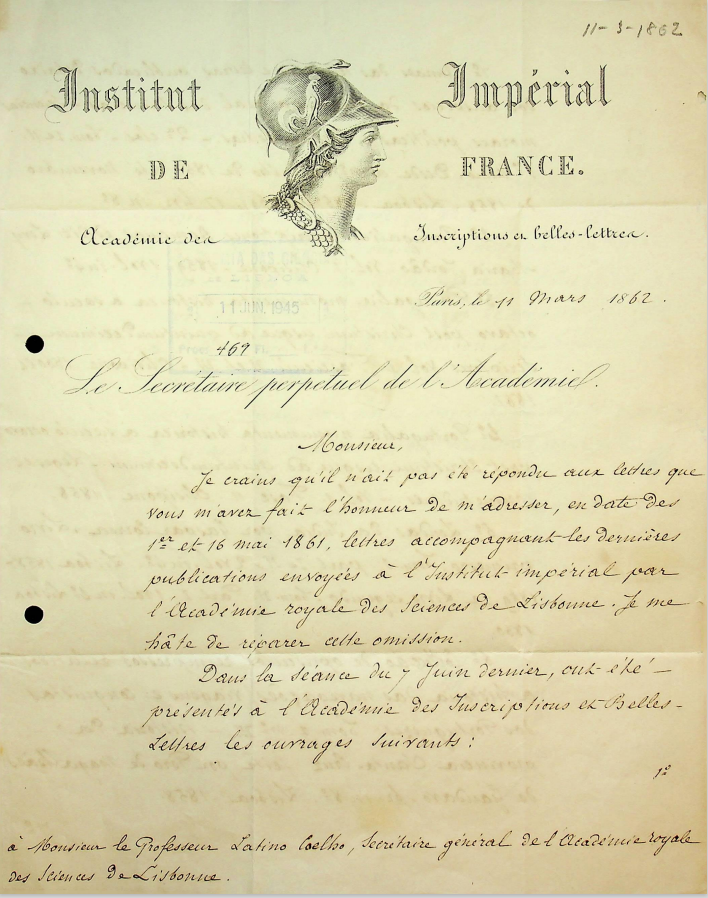 11-3-1862
Institut Impérial
DE FRANCE.
Académie des Inscriptions et belles-lettres.
11 JUN. 1945
Paris, le 11 Mars 1862.
469
Le Secrétaire perpétuel de l'Académie.
Monsieur,
Je crains qu'il n'ait pas été répondu aux lettres que
vous m'avez fait l'honneur de m'adresser, en date des
1er et 16 mai 1861, lettres accompagnant les dernières
publications envoyées à l'Institut impérial par
l'Académie royale des Sciences de Lisbonne. Je me
hâte de réparer cette omission.
Dans la séance du 7 Juin dernier, ont été
présentés à l'Académie des Inscriptions et Belles-
Lettres les ouvrages suivants :
1º
à Monsieur le Professeur Latino Coelho, Secrétaire général de l'Académie royale
des Sciences de Lisbonne.